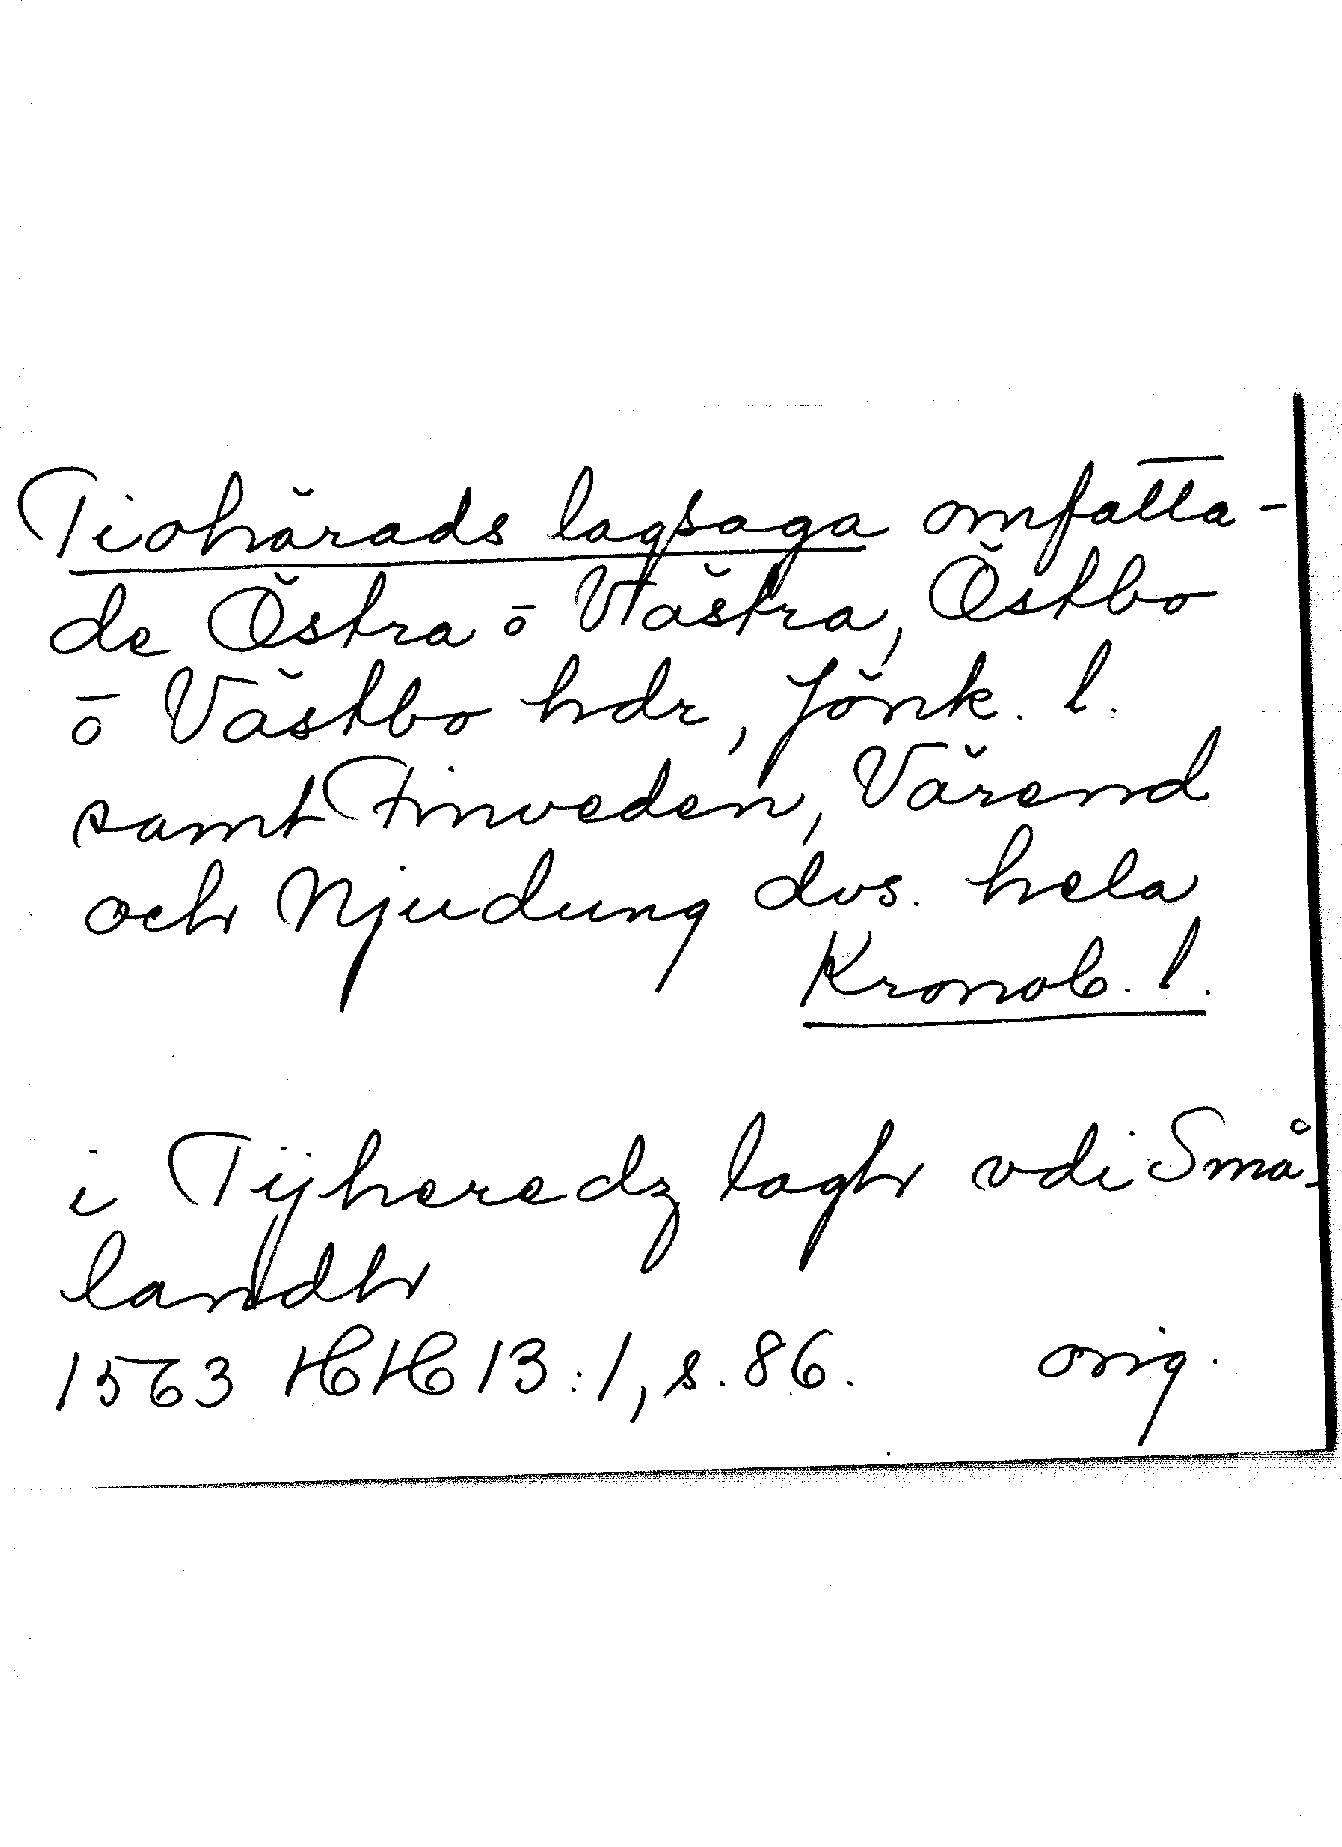 Tiohärads lagsaga omfatta-
de Östra o Västra, Östbo
o Västbo hdr, Jönk. l.
samt Finveden, Värend
och Njudung dvs. hela
Kronob. l.
i Tijheredz lagh vdi Små-
landh
1563 HH 13:1, s. 86. orig.